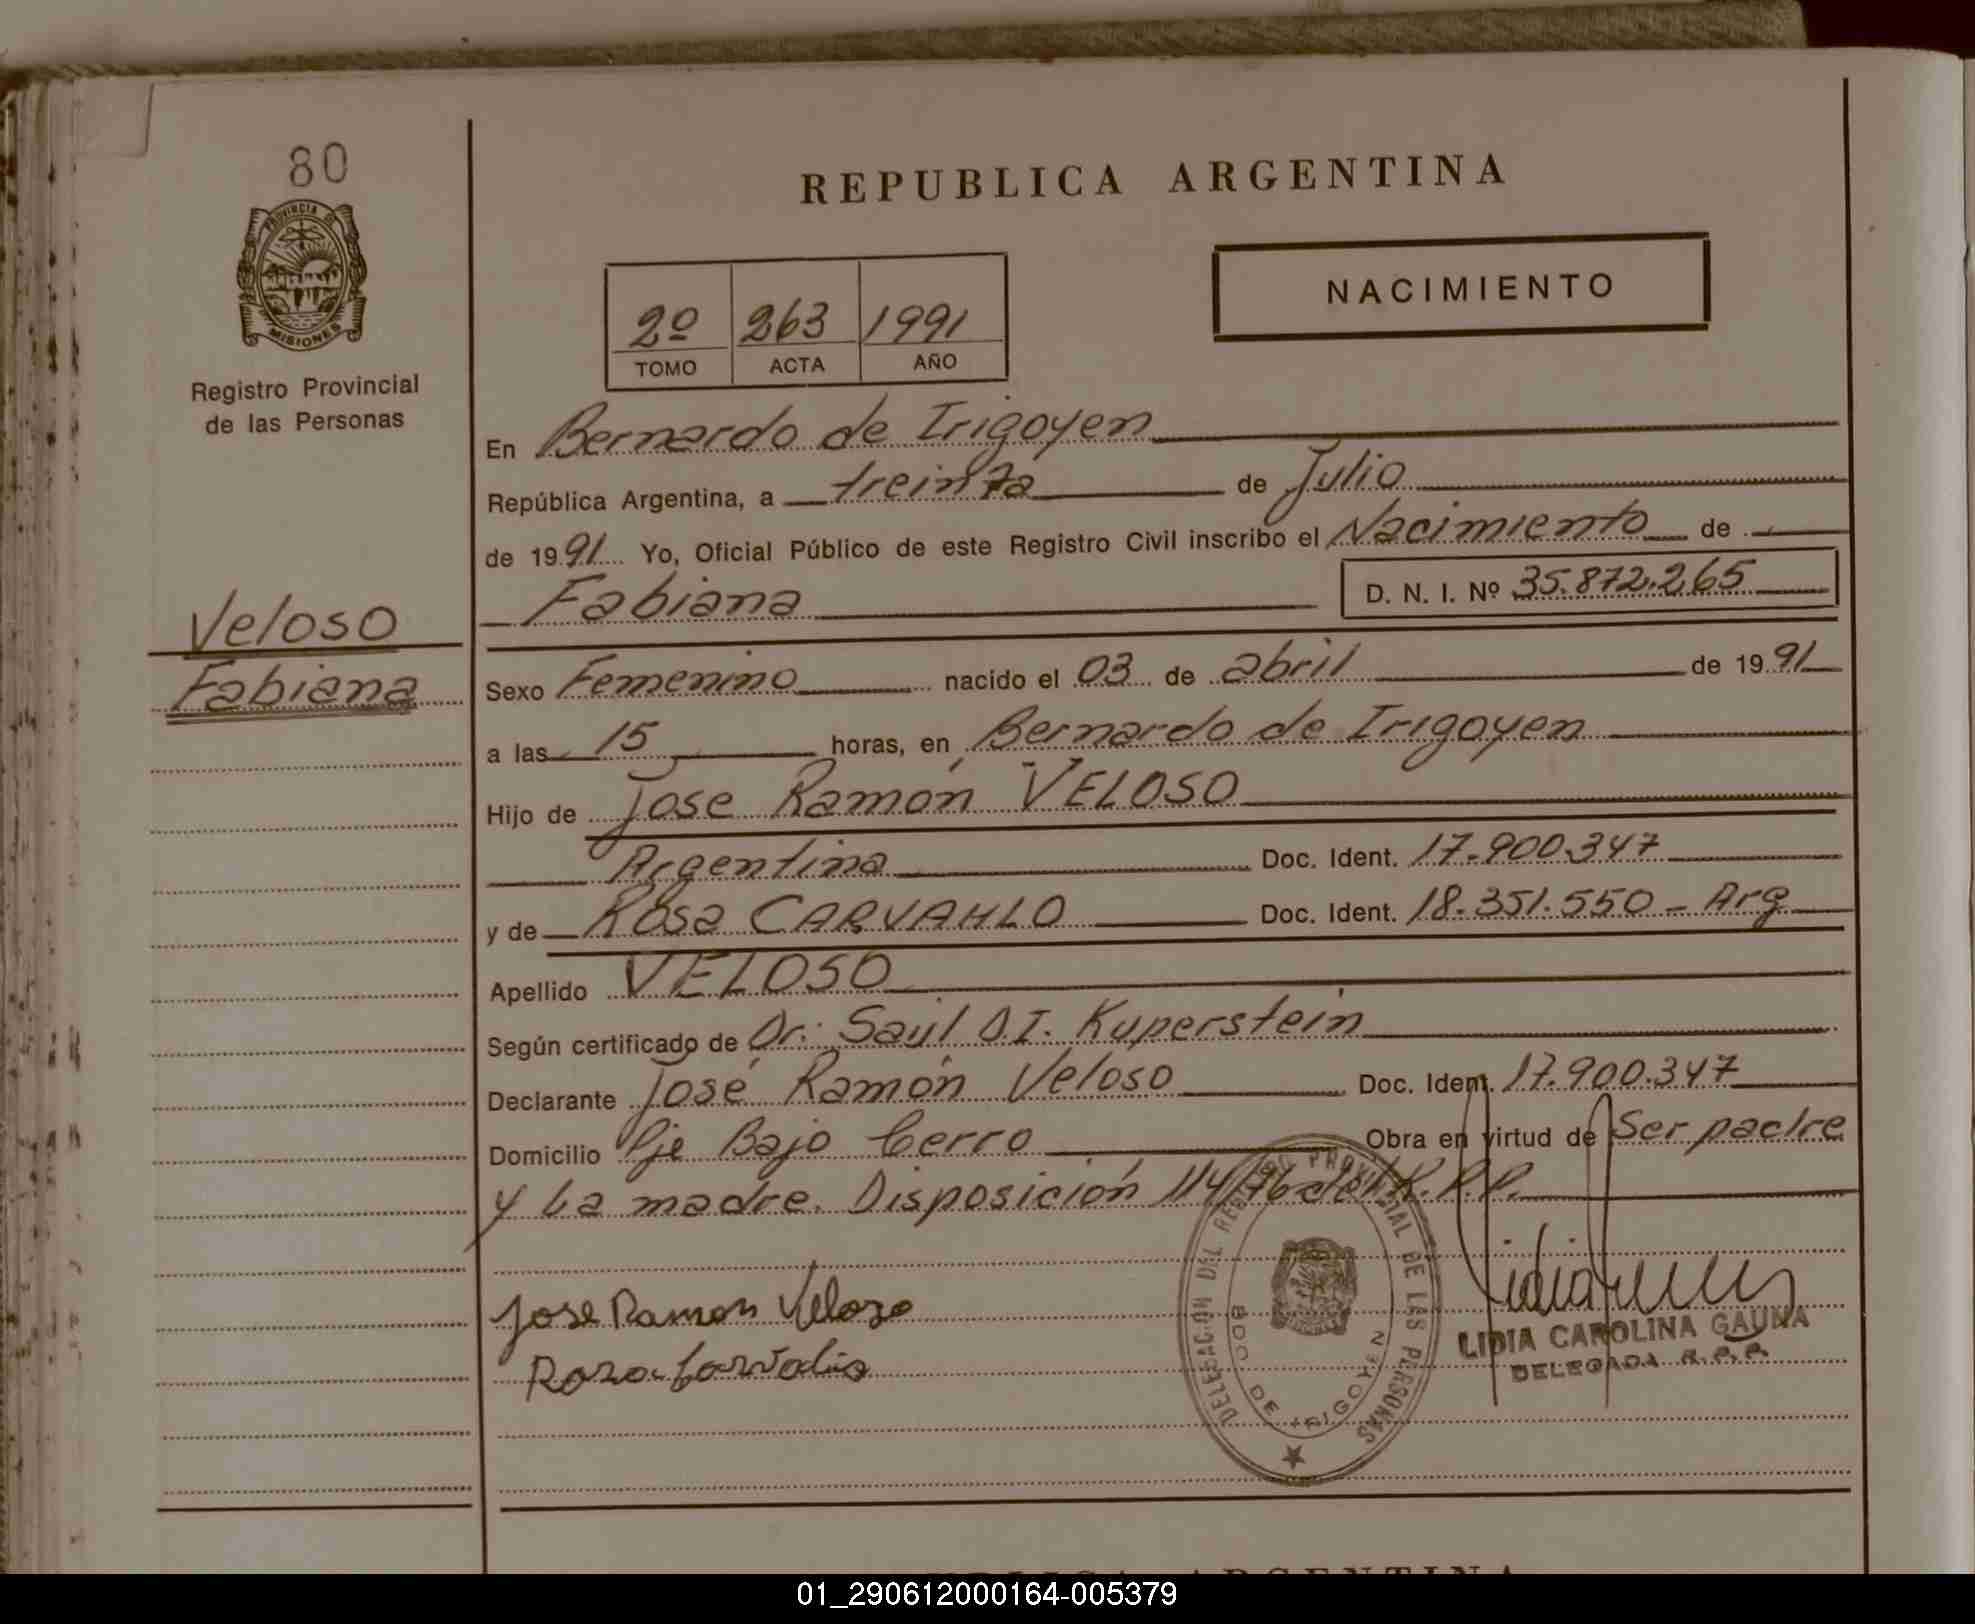 80
PROVINCIA DE
MISIONES
Registro Provincial
de las Personas
Veloso
Fabiana
REPUBLICA ARGENTINA
NACIMIENTO
2º 263 1991
TOMO ACTA AÑO
En Bernardo de Irigoyen
República Argentina, a treinta de Julio
de 1991 Yo, Oficial Público de este Registro Civil inscribo el Nacimiento de
Fabiana D. N. I. Nº 35.872.265
Sexo Femenino nacido el 03 de abril de 1991
a las 15 horas, en Bernardo de Irigoyen
Hijo de Jose Ramón VELOSO
Argentina Doc. Ident. 17.900.347
y de Rosa CARVAHLO Doc. Ident. 18.351.550 - Arg
Apellido VELOSO
Según certificado de Dr: Saúl D.I. Kuperstein
Declarante José Ramón Veloso Doc. Ident. 17.900.347
Domicilio Pje Bajo Cerro Obra en virtud de Ser padre
y La madre. Disposición 114/76 del R.P.P.
Jose Ramon Veloso
Rosa Carvalio
DELEGACION DEL REGISTRO PROVINCIAL DE LAS PERSONAS
BDO DE IRIGOYEN
LIDIA CAROLINA GAUNA
DELEGADA R.P.P.
REPUBLICA ARGENTINA
01_290612000164-005379